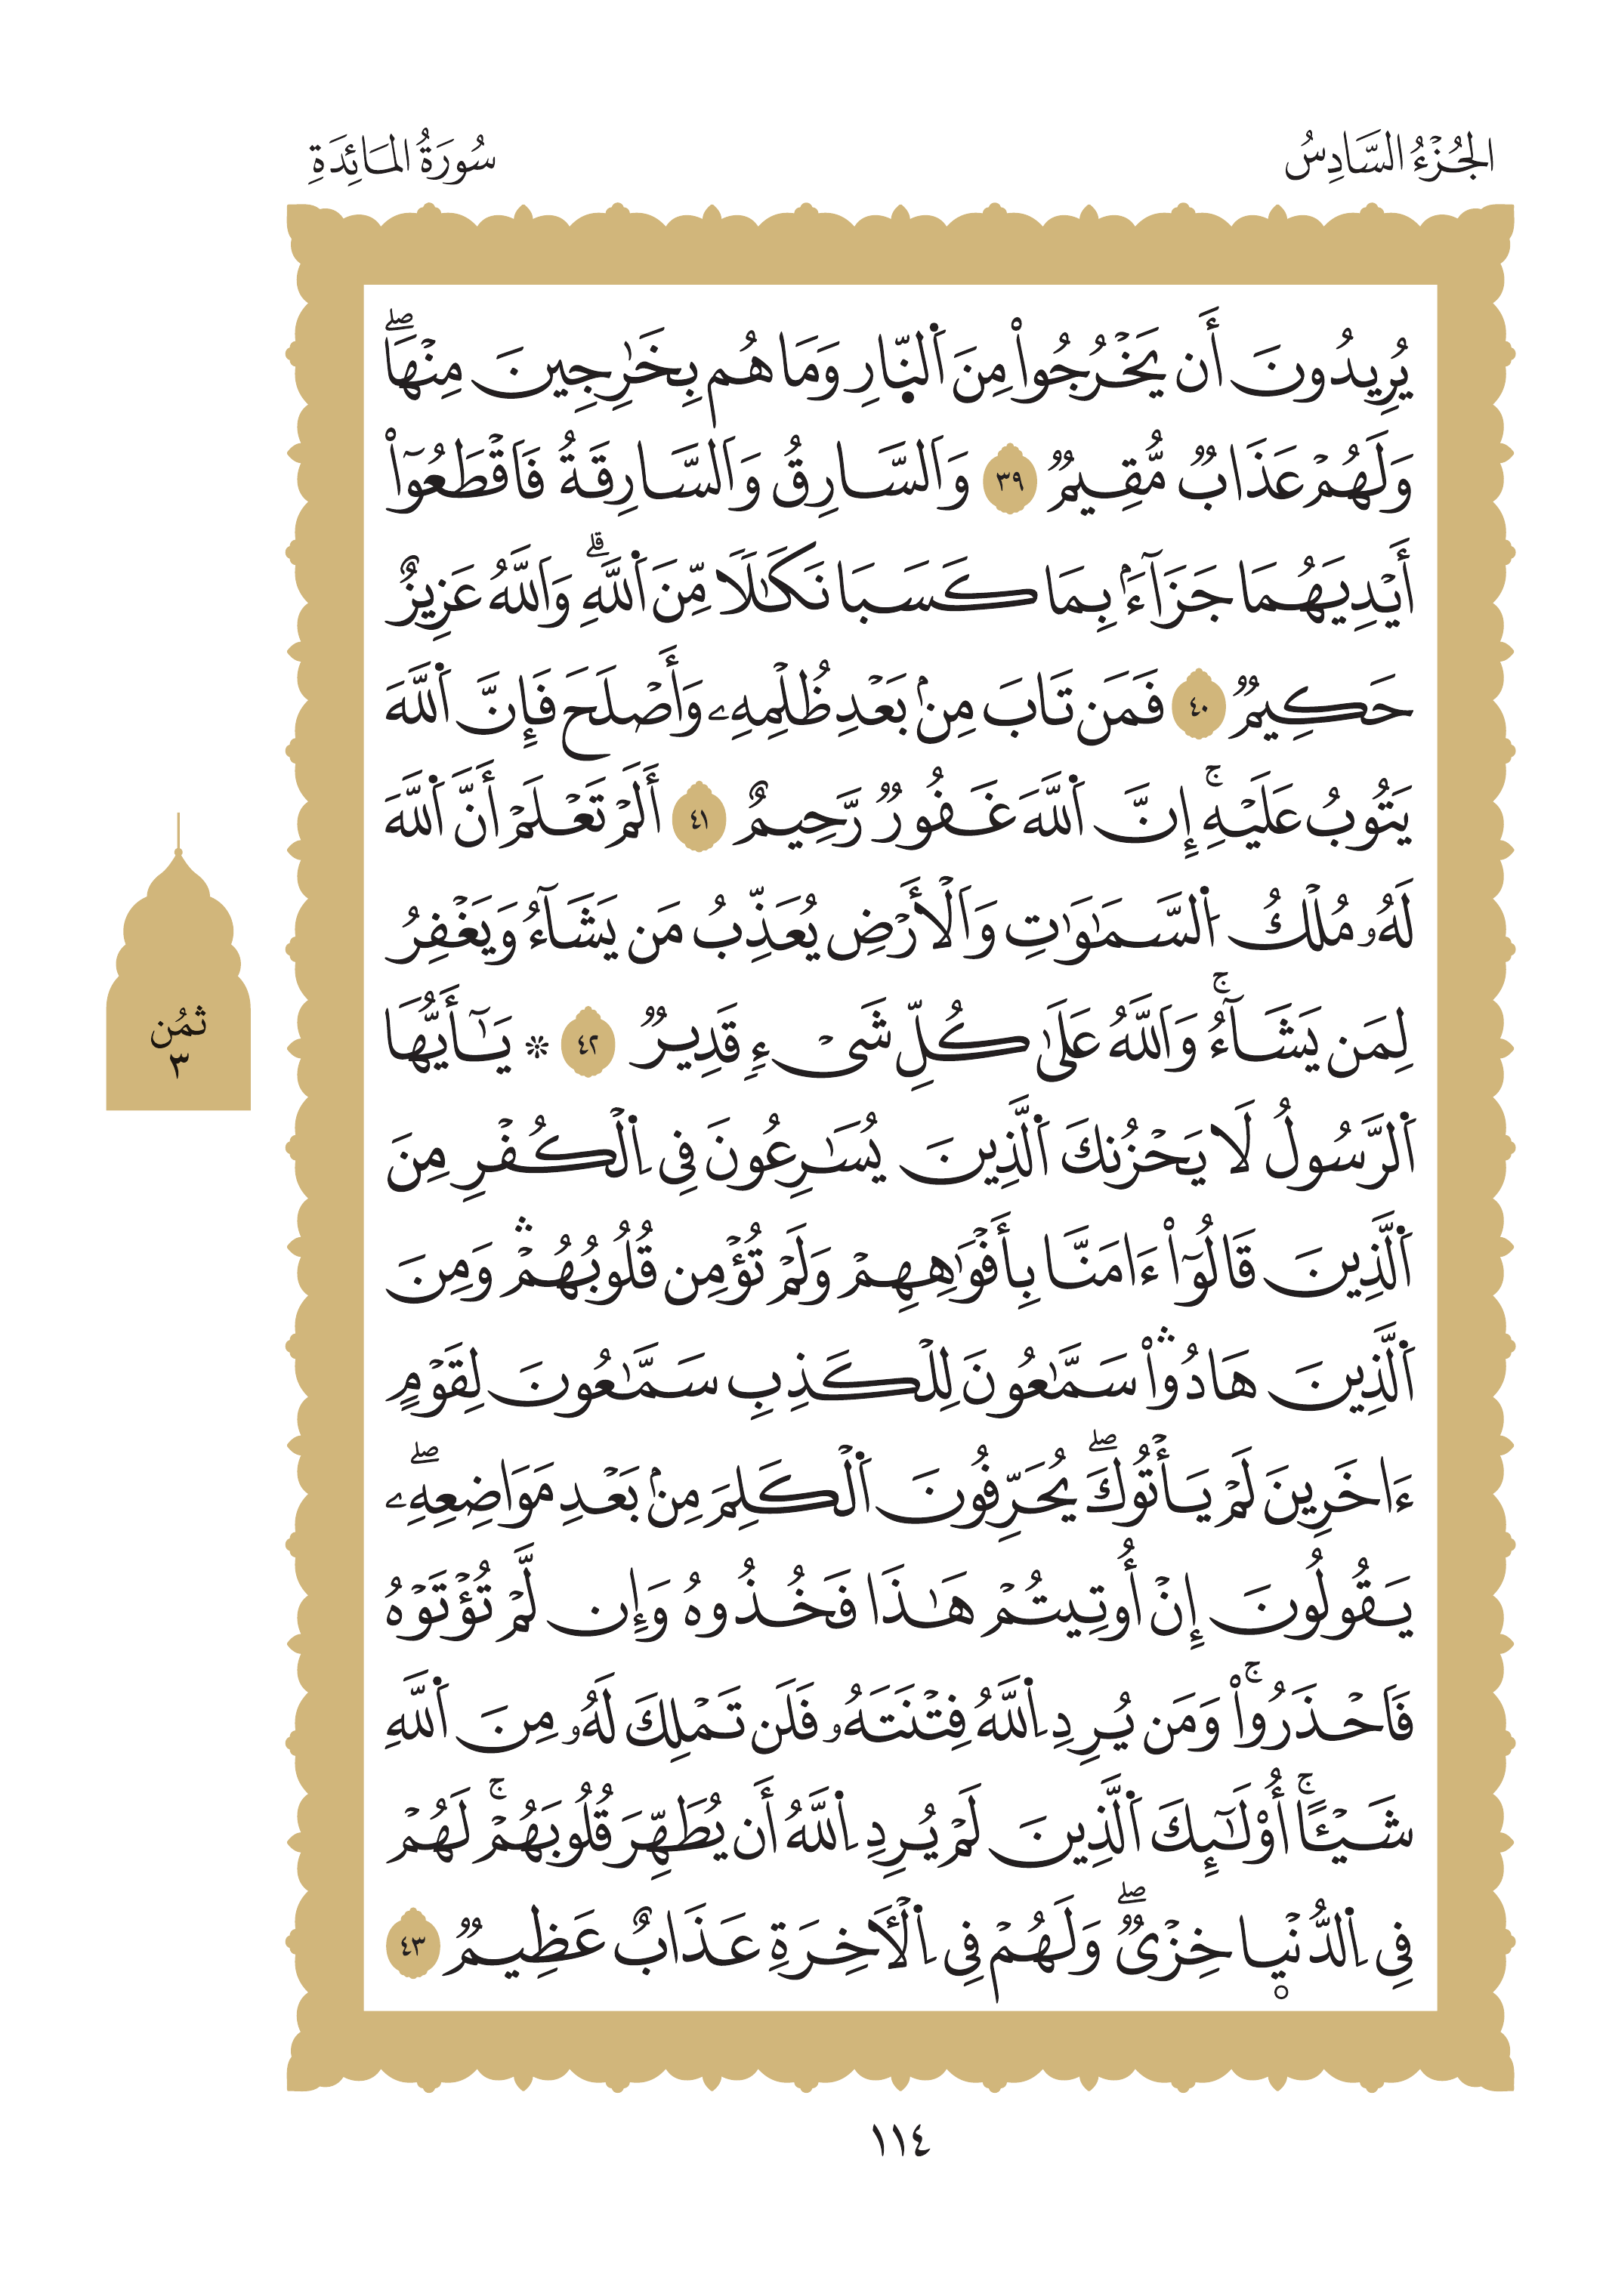 الجُزْءُ السَّادِسُ
سُورَةُ المَائِدَةِ
يُرِيدُونَ أَن يَخْرُجُوا۟ مِنَ ٱلنّ۪ارِ وَمَا هُم بِخَٰرِجِينَ مِنْهَاۖ
وَلَهُمْ عَذَابٌ مُّقِيمٌ ٣٩ وَٱلسَّارِقُ وَٱلسَّارِقَةُ فَٱقْطَعُوٓا۟
أَيْدِيَهُمَا جَزَآءَۢ بِمَا كَسَبَا نَكَٰلًا مِّنَ ٱللَّهِۗ وَٱللَّهُ عَزِيزٌ
حَكِيمٌ ٤٠ فَمَن تَابَ مِنۢ بَعْدِ ظُلْمِهِۦ وَأَصْلَحَ فَإِنَّ ٱللَّهَ
يَتُوبُ عَلَيْهِۚ إِنَّ ٱللَّهَ غَفُورٌ رَّحِيمٌ ٤١ أَلَمْ تَعْلَمْ أَنَّ ٱللَّهَ
لَهُۥ مُلْكُ ٱلسَّمَٰوَٰتِ وَٱلْأَرْضِ يُعَذِّبُ مَن يَشَآءُ وَيَغْفِرُ
لِمَن يَشَآءُۚ وَٱللَّهُ عَلَىٰ كُلِّ شَىْءٍ قَدِيرٌ ٤٢ * يَٰٓأَيُّهَا
ٱلرَّسُولُ لَا يَحْزُنكَ ٱلَّذِينَ يُسَٰرِعُونَ فِى ٱلْكُفْرِ مِنَ
ٱلَّذِينَ قَالُوٓا۟ ءَامَنَّا بِأَفْوَٰهِهِمْ وَلَمْ تُؤْمِن قُلُوبُهُمْۛ وَمِنَ
ٱلَّذِينَ هَادُوا۟ۛ سَمَّٰعُونَ لِلْكَذِبِ سَمَّٰعُونَ لِقَوْمٍ
ءَاخَرِينَ لَمْ يَأْتُوكَۖ يُحَرِّفُونَ ٱلْكَلِمَ مِنۢ بَعْدِ مَوَاضِعِهِۦۖ
يَقُولُونَ إِنْ أُوتِيتُمْ هَٰذَا فَخُذُوهُ وَإِن لَّمْ تُؤْتَوْهُ
فَٱحْذَرُوا۟ۚ وَمَن يُرِدِ ٱللَّهُ فِتْنَتَهُۥ فَلَن تَمْلِكَ لَهُۥ مِنَ ٱللَّهِ
شَيْـًٔاۚ أُو۟لَٰٓئِكَ ٱلَّذِينَ لَمْ يُرِدِ ٱللَّهُ أَن يُطَهِّرَ قُلُوبَهُمْۚ لَهُمْ
فِى ٱلدُّنْيَا خِزْىٌۖ وَلَهُمْ فِى ٱلْأَخِرَةِ عَذَابٌ عَظِيمٌ ٤٣
ثُمُن
٣
١١٤